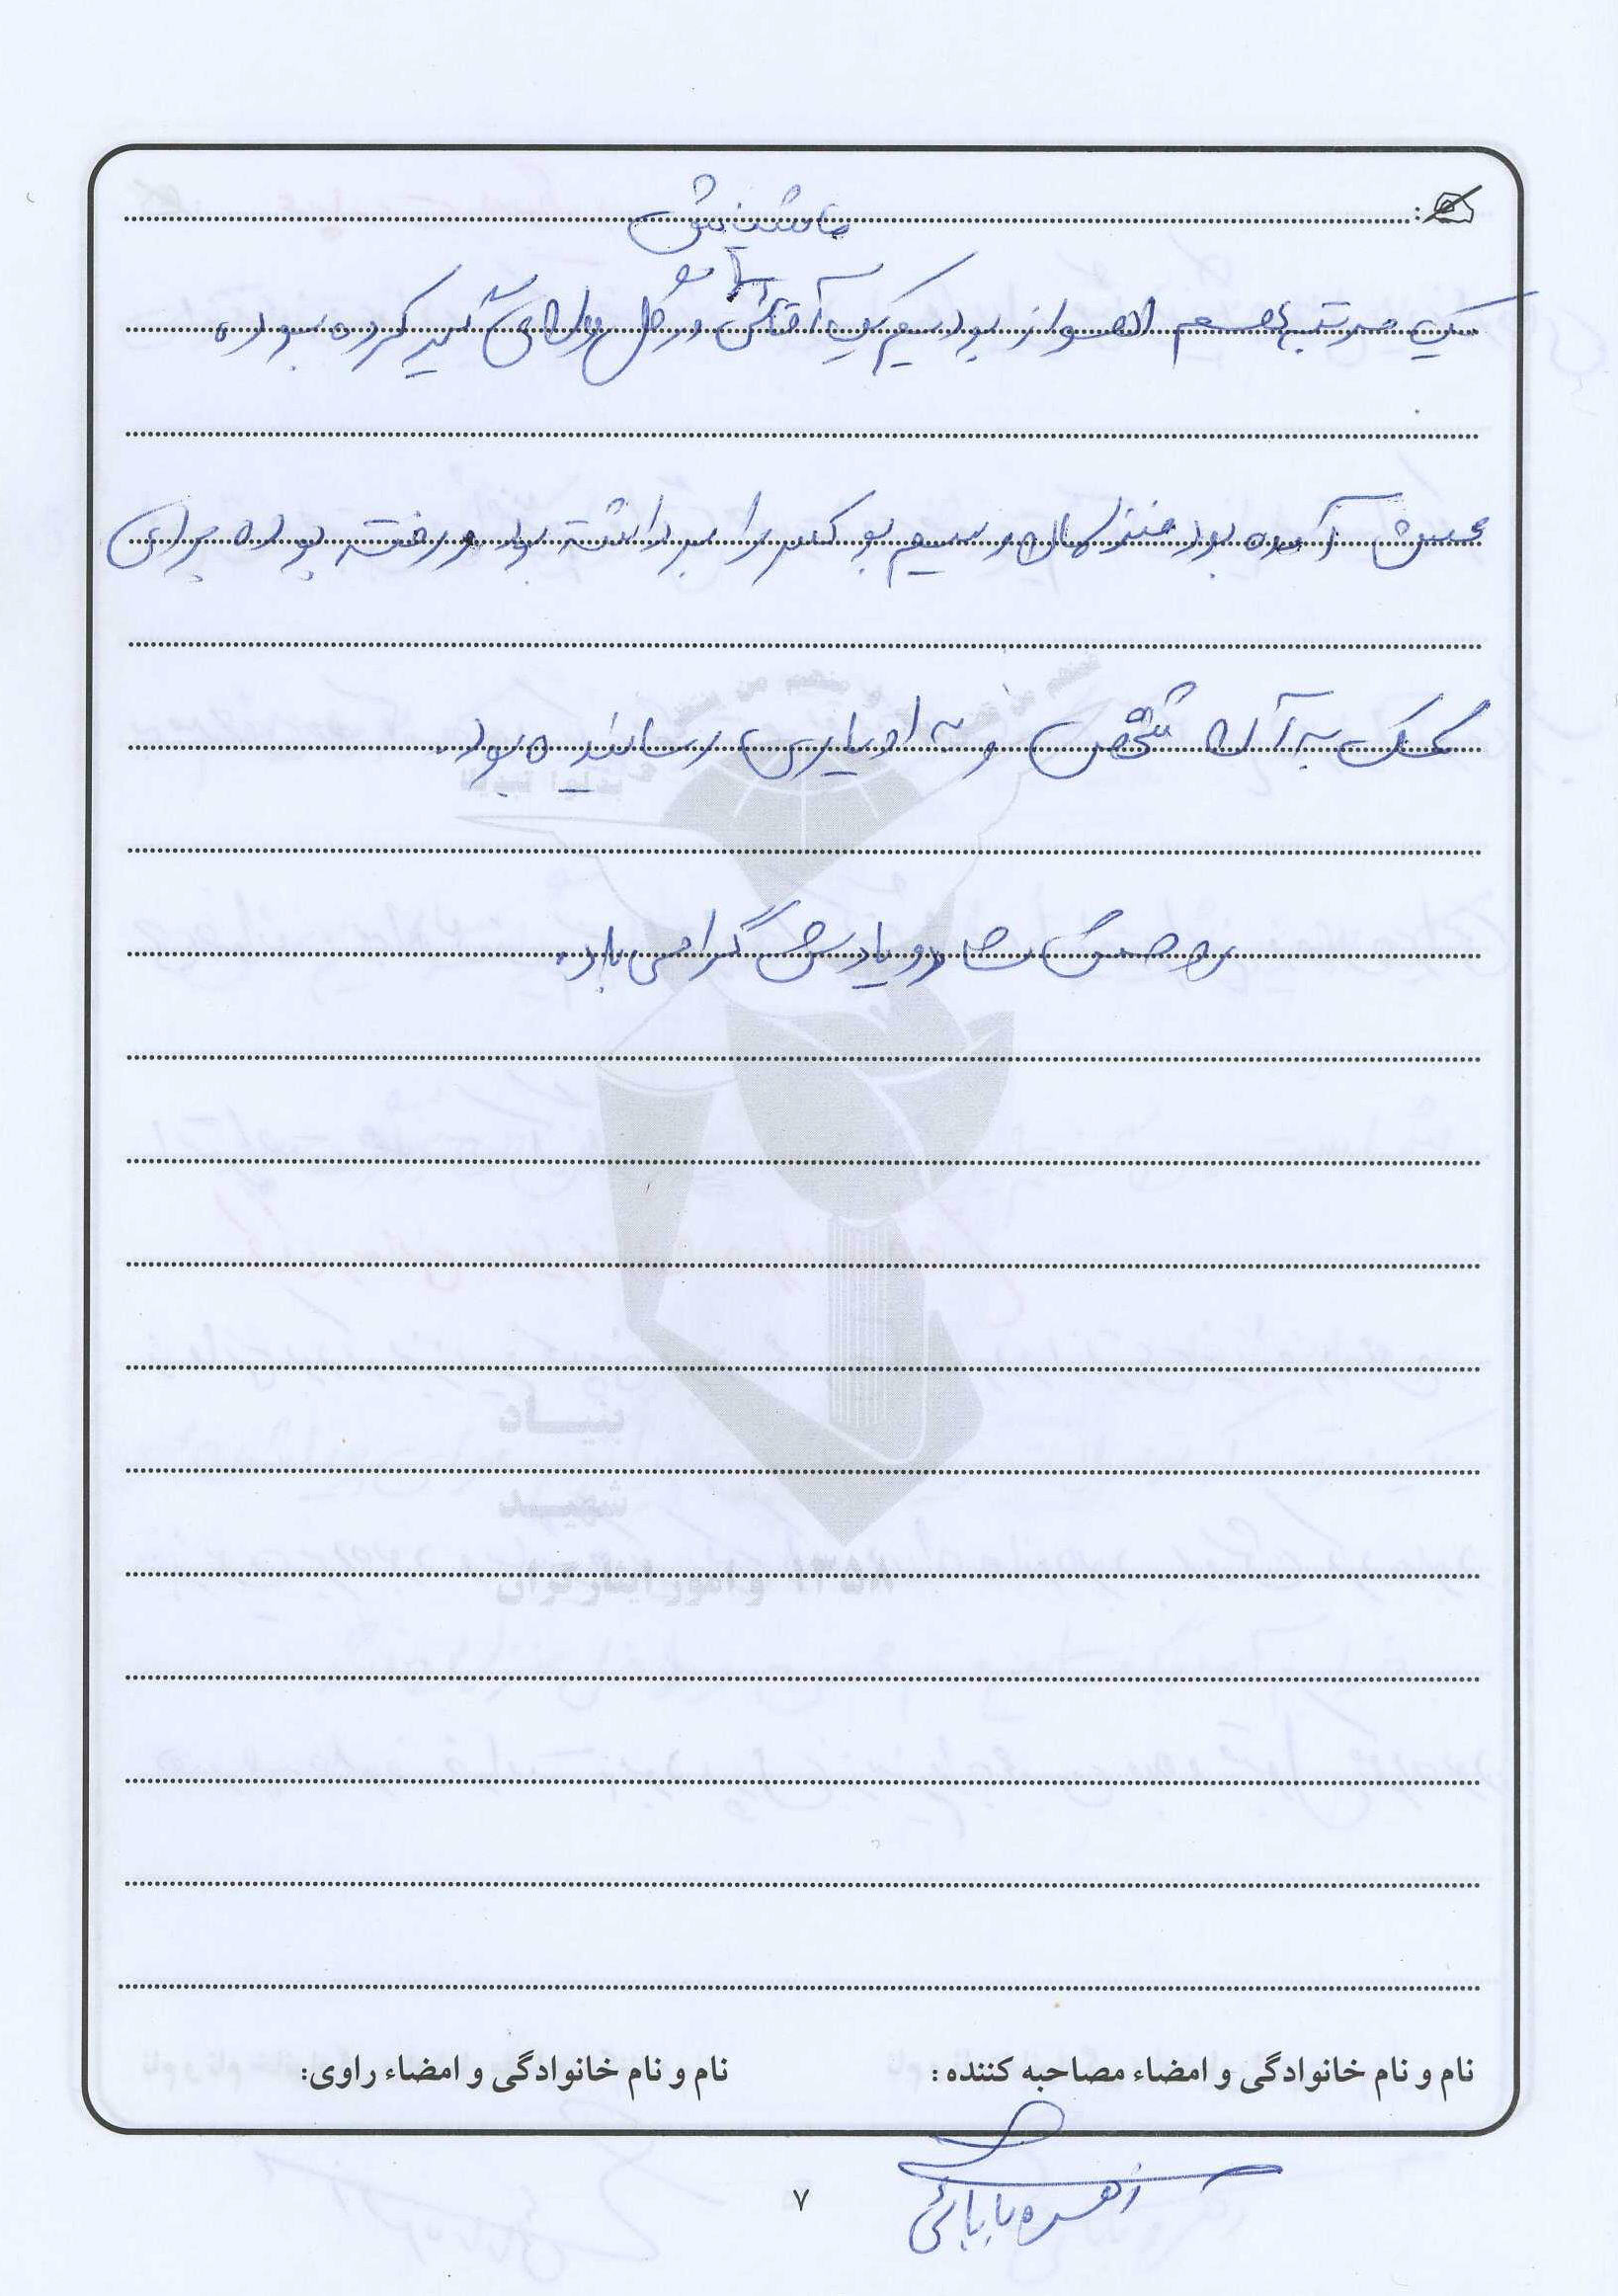 ماشینش
یک مرتبه هم اهواز بودیم که یک آقائی در گل و لای گیر کرده بوده
آمده بود منزلمان و سیم بوکسر را برداشته بود و رفته بوده برای
کمک به آن شخص و به او یاری رسانیده بود.
روحش شاد و یادش گرامی باد.
بنیاد
شهید
و امور ایثارگران ۱۳۵۸
نام و نام خانوادگی و امضاء مصاحبه کننده : نام و نام خانوادگی و امضاء راوی:
زهره بابائی
۷